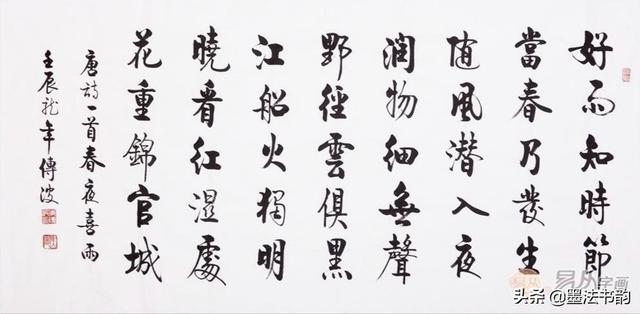 好雨知時節
當春乃發生
随風潜入夜
潤物細無聲
野徑雲俱黑
江船火獨明
曉看紅濕處
花重錦官城
唐詩一首春夜喜雨
壬辰龙年傳波
易从字画
头条@墨法书韵